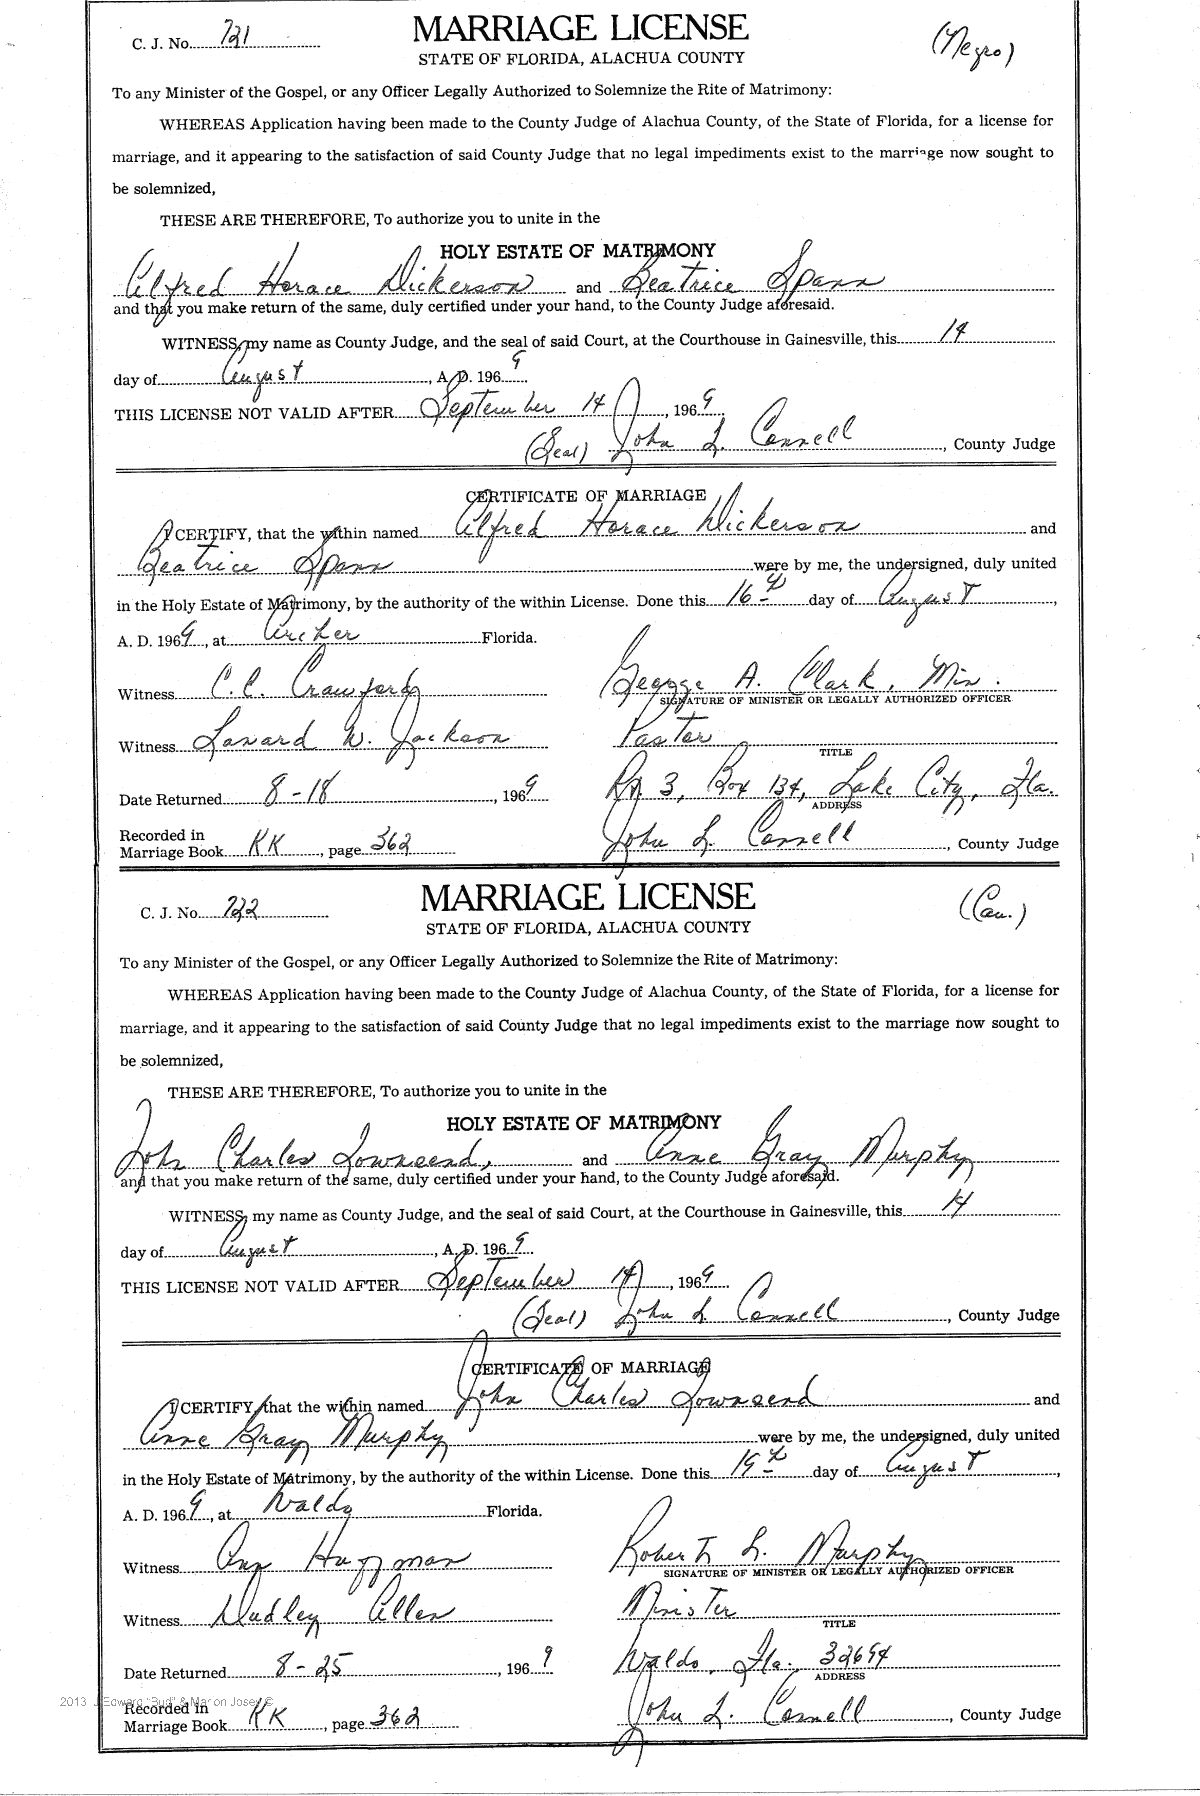 C. J. No. 721
MARRIAGE LICENSE
(Negro)
STATE OF FLORIDA, ALACHUA COUNTY
To any Minister of the Gospel, or any Officer Legally Authorized to Solemnize the Rite of Matrimony:
WHEREAS Application having been made to the County Judge of Alachua County, of the State of Florida, for a license for
marriage, and it appearing to the satisfaction of said County Judge that no legal impediments exist to the marriage now sought to
be solemnized,
THESE ARE THEREFORE, To authorize you to unite in the
HOLY ESTATE OF MATRIMONY
Alfred Horace Dickerson and Beatrice Spann
and that you make return of the same, duly certified under your hand, to the County Judge aforesaid.
WITNESS, my name as County Judge, and the seal of said Court, at the Courthouse in Gainesville, this 14
day of August, A. D. 1969.
THIS LICENSE NOT VALID AFTER September 14, 1969
(Seal) John L. Connell, County Judge
CERTIFICATE OF MARRIAGE
I CERTIFY, that the within named Alfred Horace Dickerson and
Beatrice Spann were by me, the undersigned, duly united
in the Holy Estate of Matrimony, by the authority of the within License. Done this 16th day of August,
A. D. 1969, at Archer Florida.
Witness C. C. Crawford
George A. Clark, Min.
SIGNATURE OF MINISTER OR LEGALLY AUTHORIZED OFFICER
Witness Lanard W. Jackson
Pastor
TITLE
Date Returned 8-18, 1969
Rt 3, Box 134, Lake City, Fla.
ADDRESS
Recorded in
Marriage Book KK, page 362
John L. Connell, County Judge
C. J. No. 722
MARRIAGE LICENSE
(Cau.)
STATE OF FLORIDA, ALACHUA COUNTY
To any Minister of the Gospel, or any Officer Legally Authorized to Solemnize the Rite of Matrimony:
WHEREAS Application having been made to the County Judge of Alachua County, of the State of Florida, for a license for
marriage, and it appearing to the satisfaction of said County Judge that no legal impediments exist to the marriage now sought to
be solemnized,
THESE ARE THEREFORE, To authorize you to unite in the
HOLY ESTATE OF MATRIMONY
John Charles Townsend, and Anne Gray Murphy
and that you make return of the same, duly certified under your hand, to the County Judge aforesaid.
WITNESS, my name as County Judge, and the seal of said Court, at the Courthouse in Gainesville, this 14
day of August, A. D. 1969.
THIS LICENSE NOT VALID AFTER September 14, 1969
(Seal) John L. Connell, County Judge
CERTIFICATE OF MARRIAGE
I CERTIFY, that the within named John Charles Townsend and
Anne Gray Murphy were by me, the undersigned, duly united
in the Holy Estate of Matrimony, by the authority of the within License. Done this 19th day of August,
A. D. 1969, at Waldo Florida.
Witness Ann Huffman
Robert L. Murphy
SIGNATURE OF MINISTER OR LEGALLY AUTHORIZED OFFICER
Witness Dudley Allen
Minister
TITLE
Date Returned 8-25, 1969
Waldo, Fla. 32694
ADDRESS
2013 J Edward "Bud" & Marion Josey ©
Recorded in
Marriage Book KK, page 362
John L. Connell, County Judge